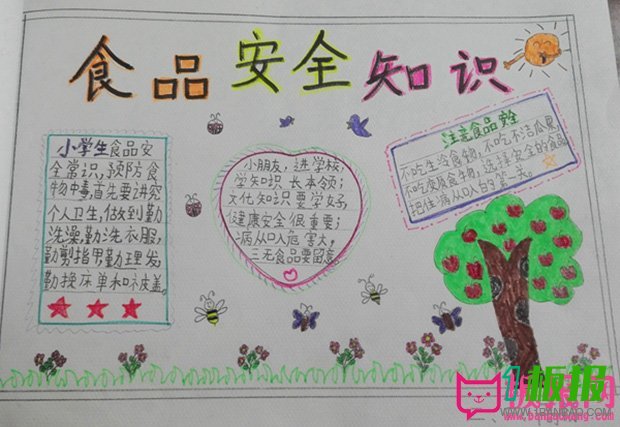 食品安全知识
小学生食品安
全常识,预防食
物中毒,首先要讲究
个人卫生,做到勤
洗澡,勤洗衣服,
勤剪指甲,勤理发,
勤换床单和被盖。
小朋友,进学校,
学知识 长本领;
文化知识要学好,
健康安全很重要;
病从口入危害大,
三无食品要留意
注意食品安全
不吃生冷食物,不吃不洁瓜果
不吃变质食物,选择安全的食品
把住病从口入的第一关。
板报